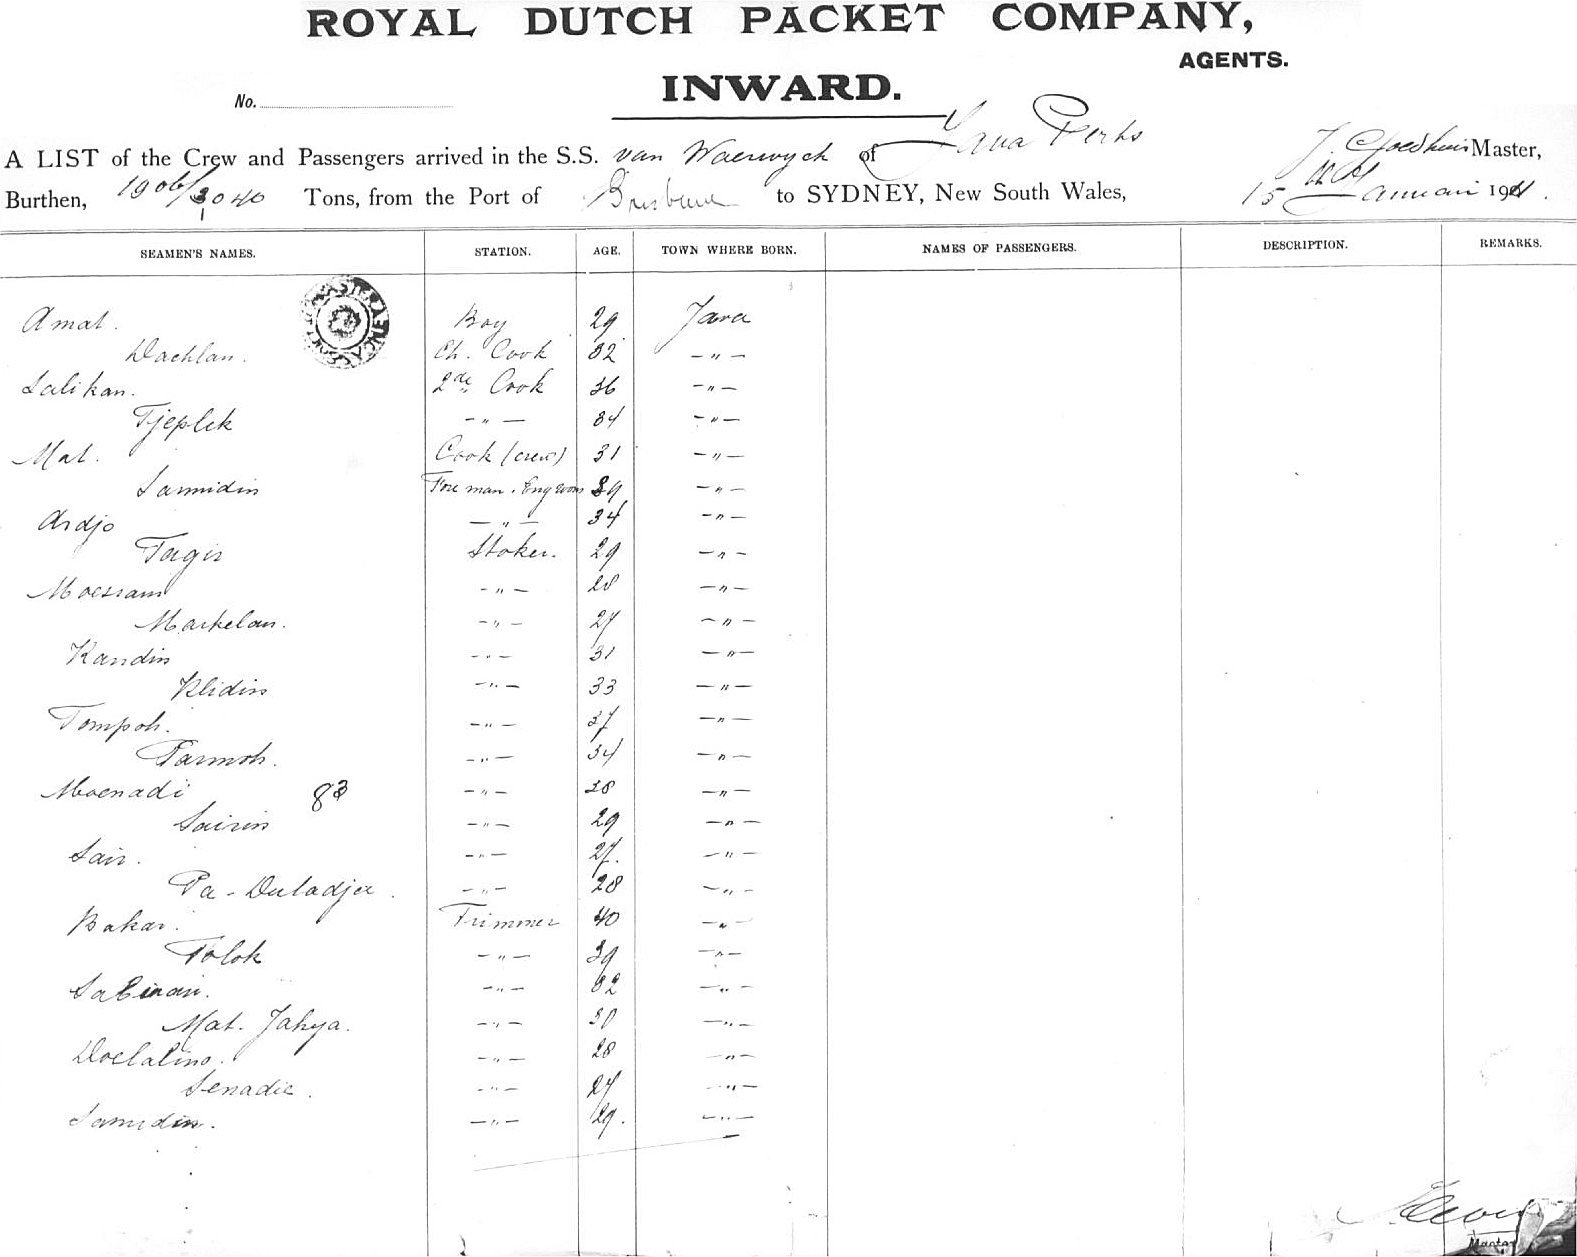 ROYAL DUTCH PACKET COMPANY,
AGENTS.
INWARD.
No.
A LIST of the Crew and Passengers arrived in the S.S. van Waerwyck of Java Ports J. Goedhuis Master,
Burthen, 1906/3040 Tons, from the Port of Brisbane to SYDNEY, New South Wales, 15 Januari 19
SEAMEN'S NAMES. STATION. AGE. TOWN WHERE BORN. NAMES OF PASSENGERS. DESCRIPTION. REMARKS.
Amat. Boy 29 Java
Dachlan. Ch. Cook 32 -"-
Salikan. 2de Cook 36 -"-
Tjeplek -"- 34 -"-
Mat. Cook (crew) 31 -"-
Sarmidin Foreman. Eng room 39 -"-
Ardjo -"- 34 -"-
Tagir Stoker. 29 -"-
Moesram -"- 28 -"-
Markelan. -"- 27 -"-
Kardin -"- 31 -"-
Klidin -"- 33 -"-
Tompoh. -"- 37 -"-
Parmoh. -"- 34 -"-
Moenadi 83 -"- 38 -"-
Sairin -"- 29 -"-
Sair. -"- 27. -"-
Pa-Duladja. -"- 28 -"-
Bakar. Trimmer 40 -"-
Tolok -"- 39 -"-
-"- 32 -"-
Mat. Jahya. -"- 30 -"-
Doelatino. -"- 28 -"-
Senadie. -"- 27 -"-
Samidin. -"- 29. -"-
Master